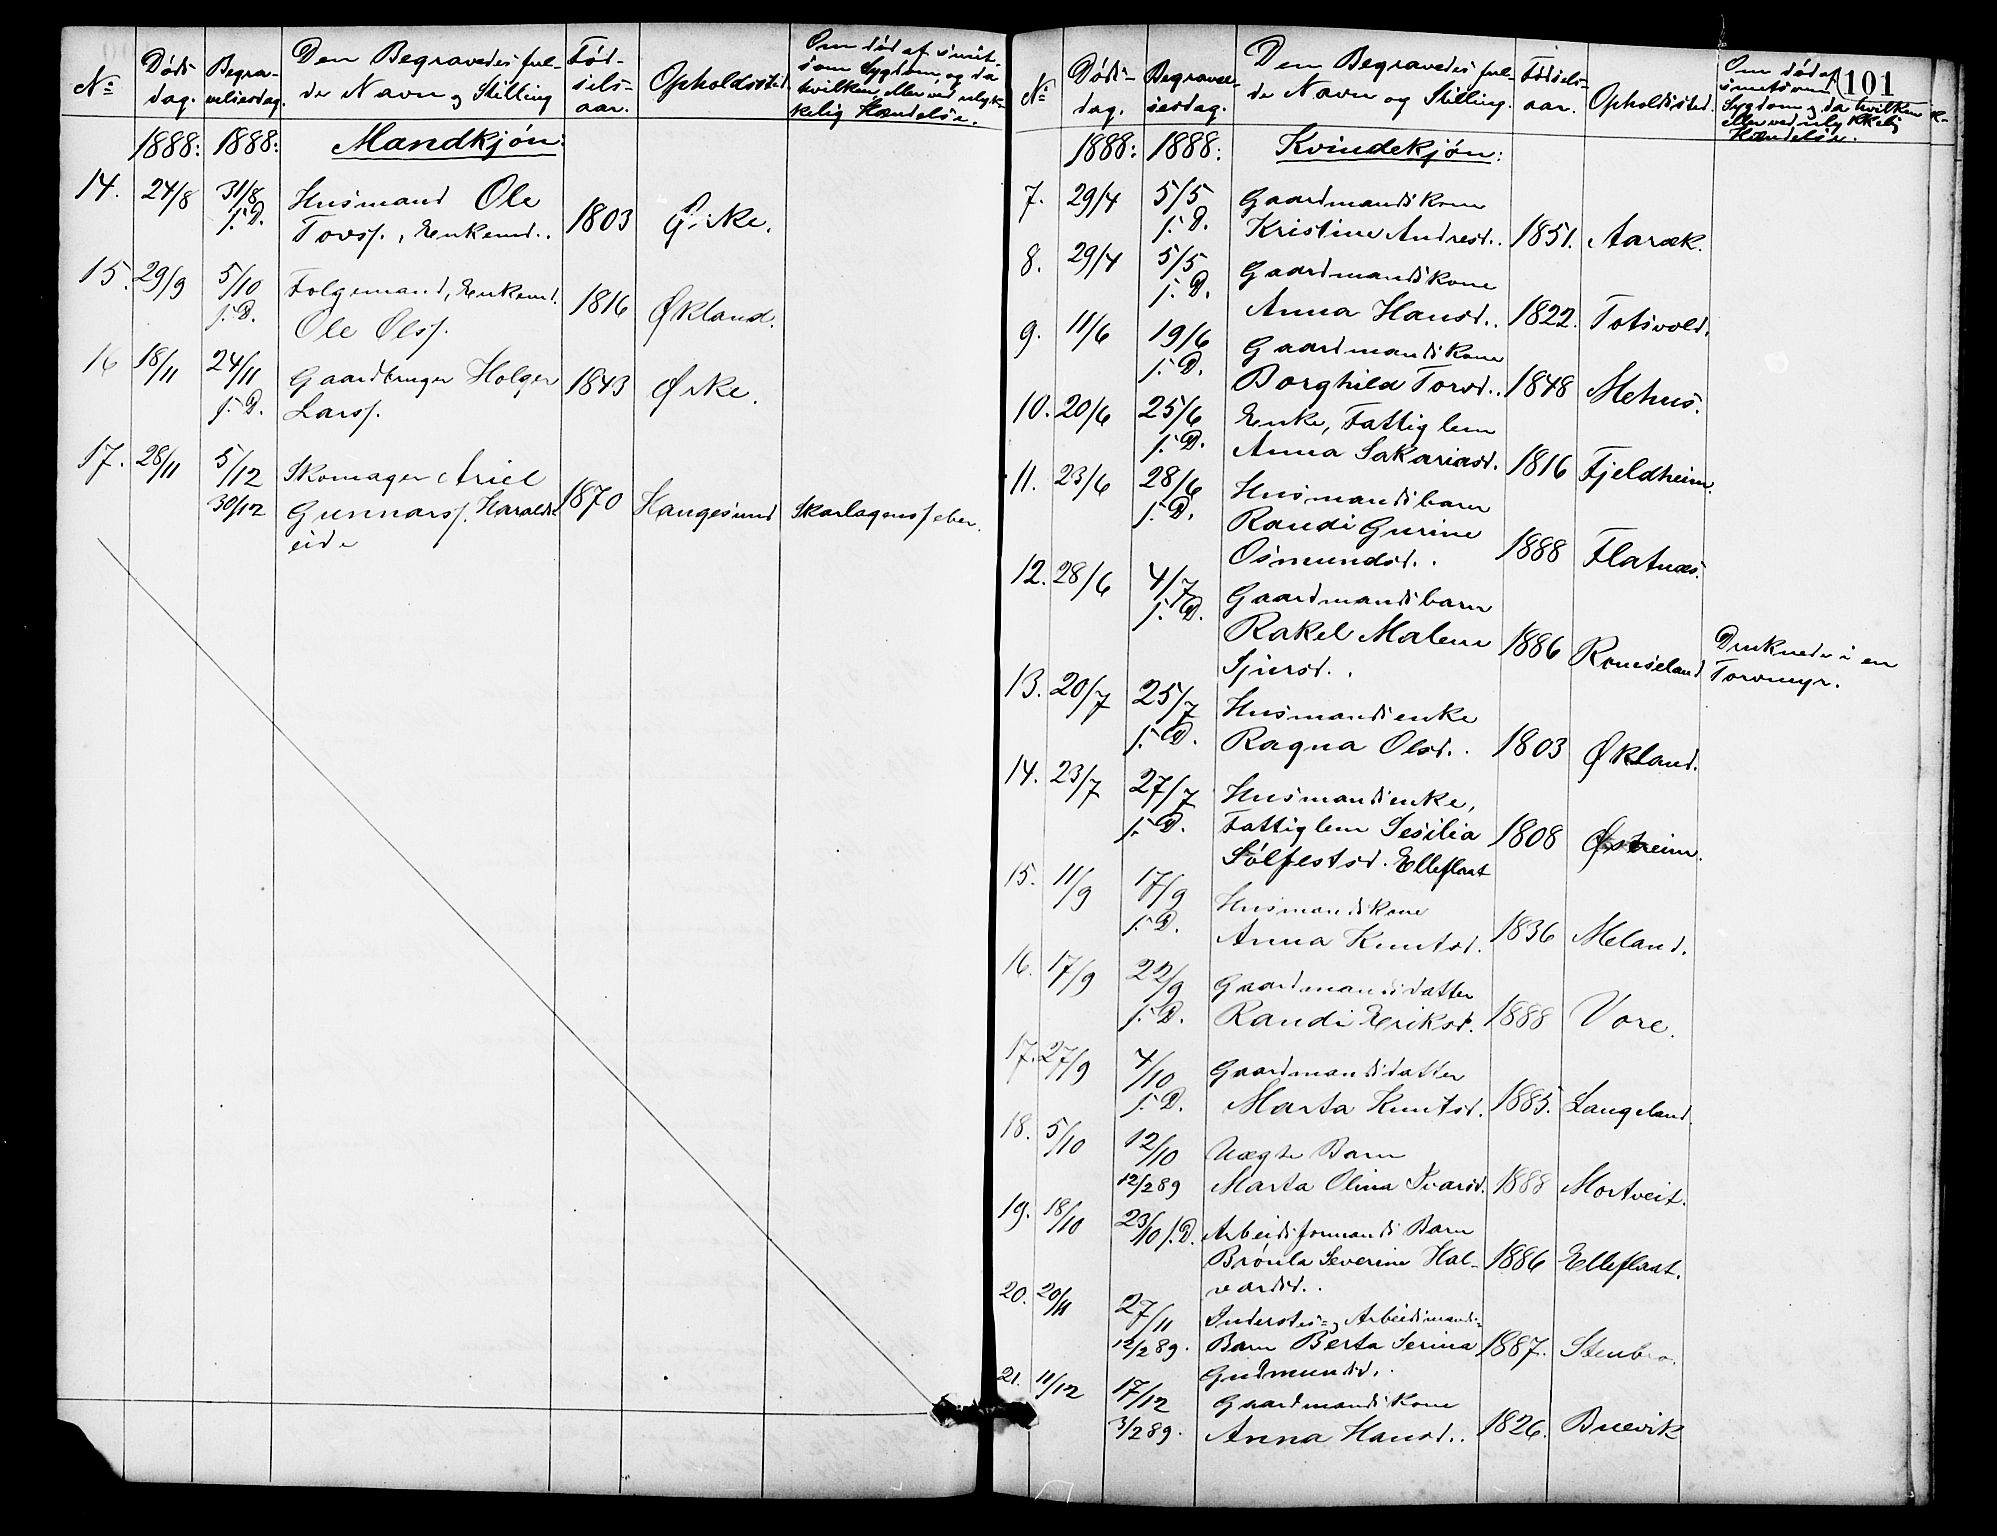 No
Døds-
dag.
Begra-
velsesdag.
Den Begravedes ful-
de Navn og Stilling
Fød-
sels-
aar.
Opholdssted.
Om død af smit-
som Sygdom, og da
hvilken, eller ved ulyk-
kelig Hændelse.
1888: 1888: Mandkjøn:
14. 24/8 31/8 Husmand Ole
s. D. Tovss., Enkemd.. 1803
15. 29/9 5/10 Folgemand, Enkemd.
s. D. Ole Olss. 1816 Økland.
16 18/11 24/11 Gaardbruger Holger
s. D. Larss. 1843 Ørke.
17. 28/11 5/12 Skomager Ariel
30/12 Gunnarss. Haralds- 1870 Haugesund Skarlagensfeber.
eide
No
Døds-
dag.
Begravel-
sesdag.
Den Begravedes ful-
de Navn og Stilling.
Fødsels-
aar.
Opholdssted.
Om død af
smitsom
Sygdom og da hvilken
eller ved ulykkelig
Hændelse.
101
1888: 1888: Kvindekjøn:
7. 29/4 5/5 Gaardmandskone
s. D. Kristine Andresd.. 1851. Aaræk.
8. 29/4 5/5 Gaardmandskone
s. D. Anna Hansd.. 1822. Totsvold.
9. 11/6 19/6 Gaardmandskone
s. D. Borghild Torsd.. 1848 Mehus.
10. 20/6 25/6 Enke, Fattiglem
s. D. Anna Sakariasd. 1816 Fjeldheim.
11. 23/6 28/6 Husmandsbarn
s. D. Randi Gurine
Osmundsd.. 1888 Flatnæs.
12. 28/6 4/7 Gaardmandsbarn
s. D. Rakel Malene 1886 Druknede i en
Sjursd.. Torvmyr.
13. 20/7 25/7 Husmandsenke
s. D. Ragna Olsd.. 1803 Økland.
14. 23/7 27/7 Husmandsenke,
s. D. Fattiglem Sesilia 1808 Østreim.
Sølfestsd. Elleflaat
15. 11/9 17/9 Husmandskone
s. D. Anna Knutsd. 1836 Meland.
16. 17/9 22/9 Gaardmandsdatter
s. D. Randi Eriksd. 1888 Vore.
17. 27/9 4/10 Gaardmandsdatter
s. D. Marta Knutsd. 1885. Langeland.
18. 5/10 12/10 Uægte Barn
12/2 89 Marta Olina Ivarsd. 1888 Mortveit.
19. 18/10 23/10 s. D. Arbeidsformands Barn
Brønla Severine Hal- 1886 Elleflaat.
vardsd..
20. 20/11 27/11 Inderstes- og Arbeidsmands-
12/2 89. Barn Berta Serina 1887. Stenbro.
Gudmundsd.
21. 11/12 17/12 Gaardmandskone
3/2 89. Anna Hansd.. 1826. Buevik